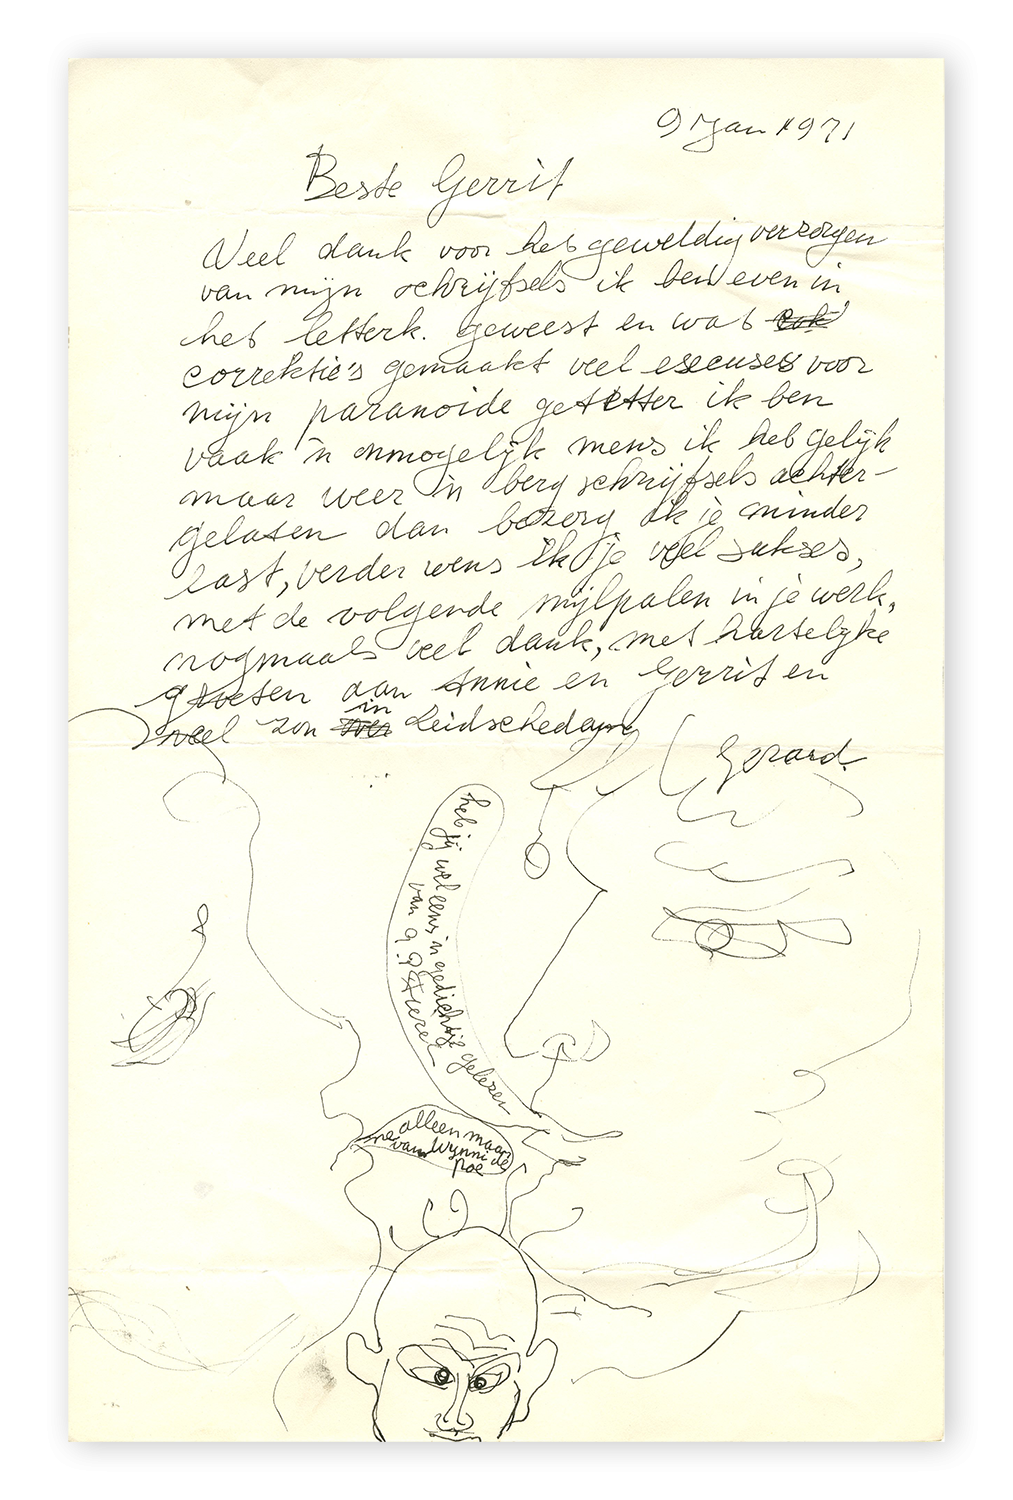 9 Jan 1971
Beste Gerrit
Veel dank voor het geweldig verzorgen
van mijn schrijfsels ik ben even in
het letterk. geweest en wat
correktie's gemaakt veel execuses voor
mijn paranoide getetter ik ben
vaak 'n onmogelijk mens ik heb gelijk
maar weer 'n berg schrijfsels achter-
gelaten dan bezorg ik je minder
last, verder wens ik je veel sukses,
met de volgende mijlpalen in je werk,
nogmaals veel dank, met hartelijke
groeten aan Annie en Gerrit en
veel zon in Leidschedam
Gerard.
heb jij wel eens 'n gedichtje gelezen
van
nee alleen maar
van Wynni de
Poe